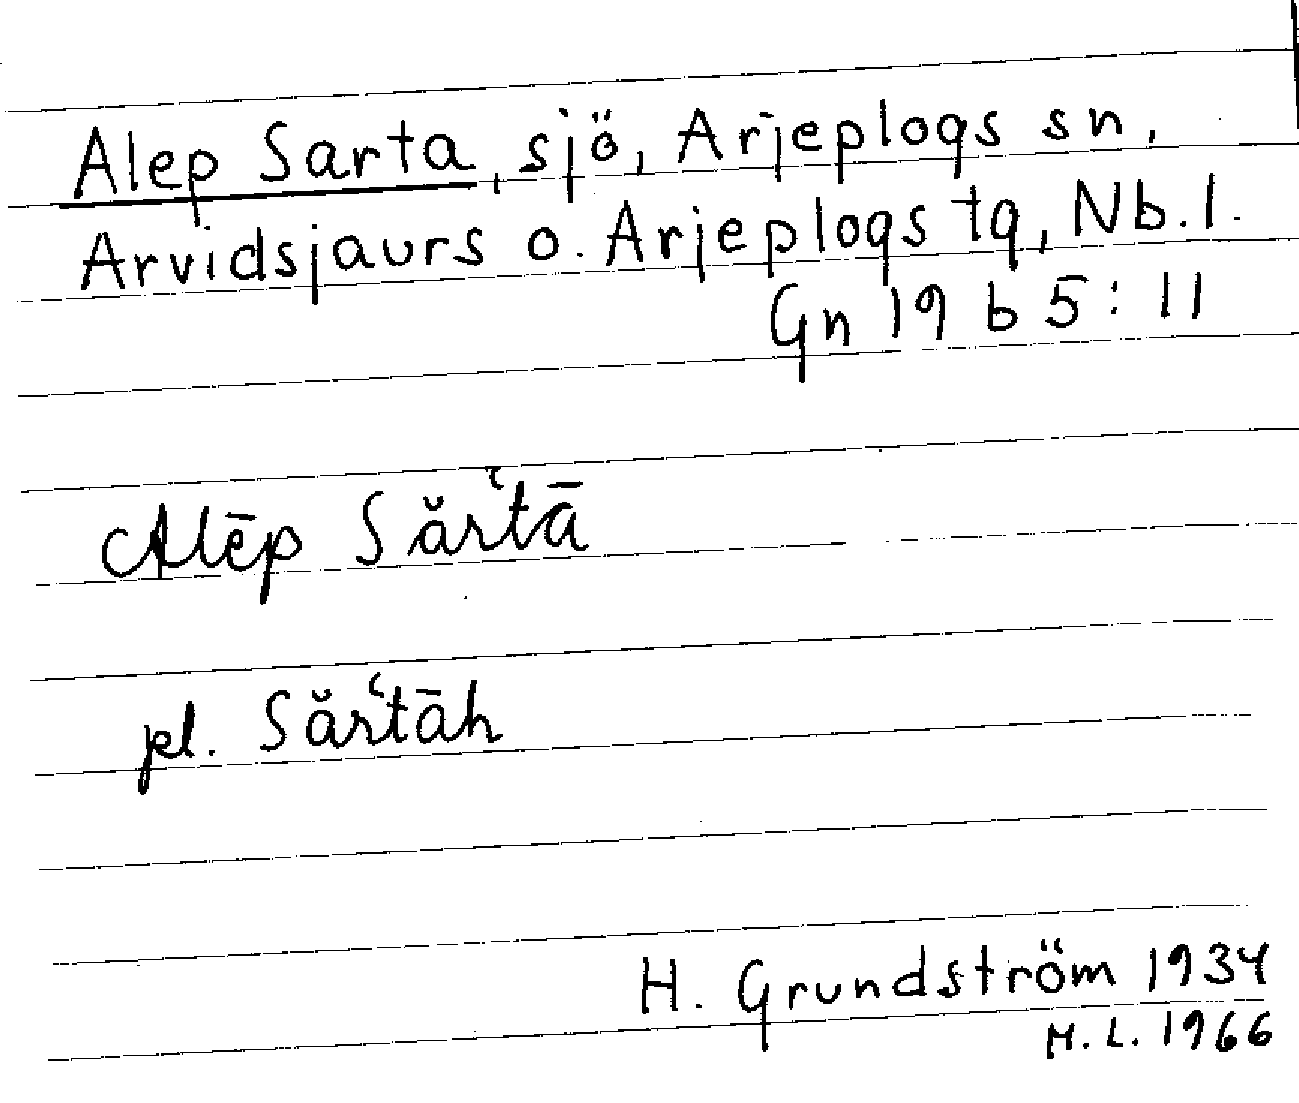 Alep Sarta, sjö, Arjeplogs sn,
Arvidsjaurs o. Arjeplogs tg, Nb. l.
Gn 19 b 5:11
Alēp Sărʿtā
pl. Sărʿtāh
H. Grundström 1934
M.L. 1966